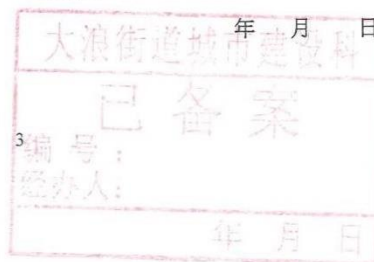 年 月 日
大浪街道城市建设科
已备案
3
编号：
经办人：
年 月 日